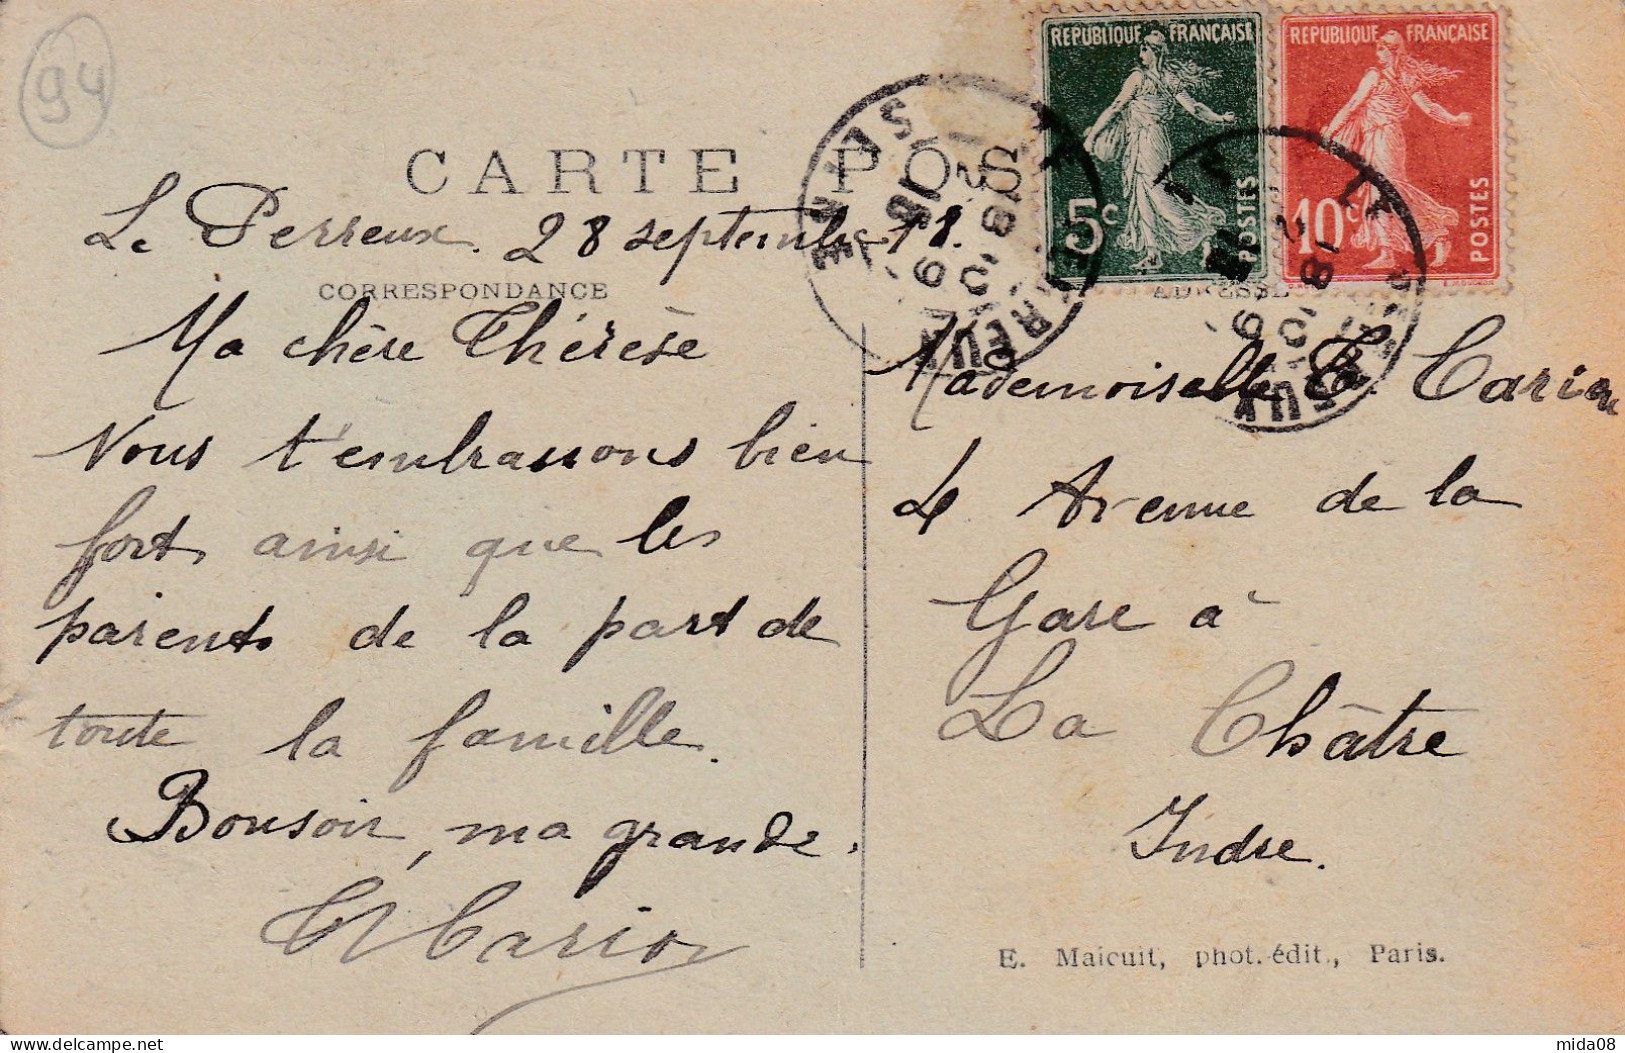 94
RÉPUBLIQUE FRANÇAISE
5c
POSTES
RÉPUBLIQUE FRANÇAISE
10c
POSTES
CARTE POS
Le Perreux. 28 septembre 18.
CORRESPONDANCE
Ma chère Thérèse
Nous t'embrassons bien
fort ainsi que les
parents de la part de
toute la famille.
Bonsoir, ma grande.
ADRESSE
Mademoiselle T. Carion
4 Avenue de la
Gare à
La Châtre
Indre.
E. Maicuit, phot.-édit., Paris.
mida08